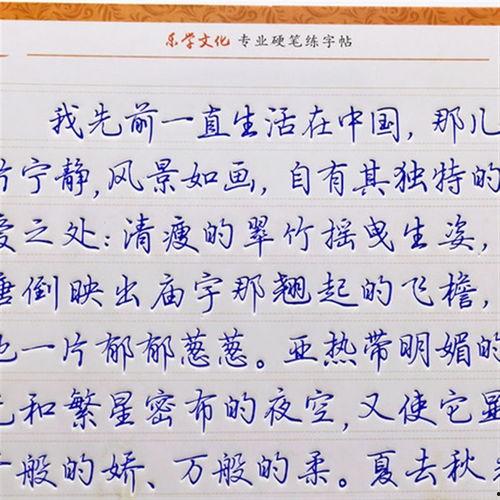 乐学文化 专业硬笔练字帖
我先前一直生活在中国,那儿
片宁静,风景如画,自有其独特的
爱之处:清瘦的翠竹摇曳生姿,
倒映出庙宇那翘起的飞檐,
一片郁郁葱葱。亚热带明媚的
和繁星密布的夜空,又使它显
般的娇、万般的柔。夏去秋